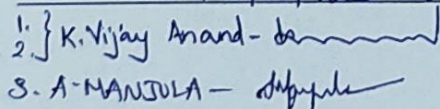 1.
2. } K. Vijay Anand -
3. A. MANJULA -